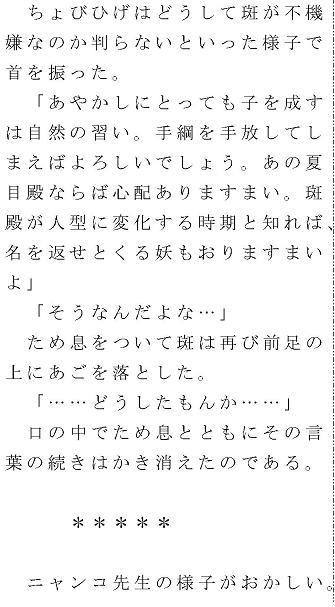 ちょびひげはどうして斑が不機
嫌なのか判らないといった様子で
首を振った。
　「あやかしにとっても子を成す
は自然の習い。手綱を手放してし
まえばよろしいでしょう。あの夏
目殿ならば心配ありますまい。斑
殿が人型に変化する時期と知れば、
名を返せとくる妖もおりますまい
よ」
　「そうなんだよな…」
　ため息をついて斑は再び前足の
上にあごを落とした。
　「……どうしたもんか……」
　口の中でため息とともにその言
葉の続きはかき消えたのである。
＊＊＊＊＊
　ニャンコ先生の様子がおかしい。